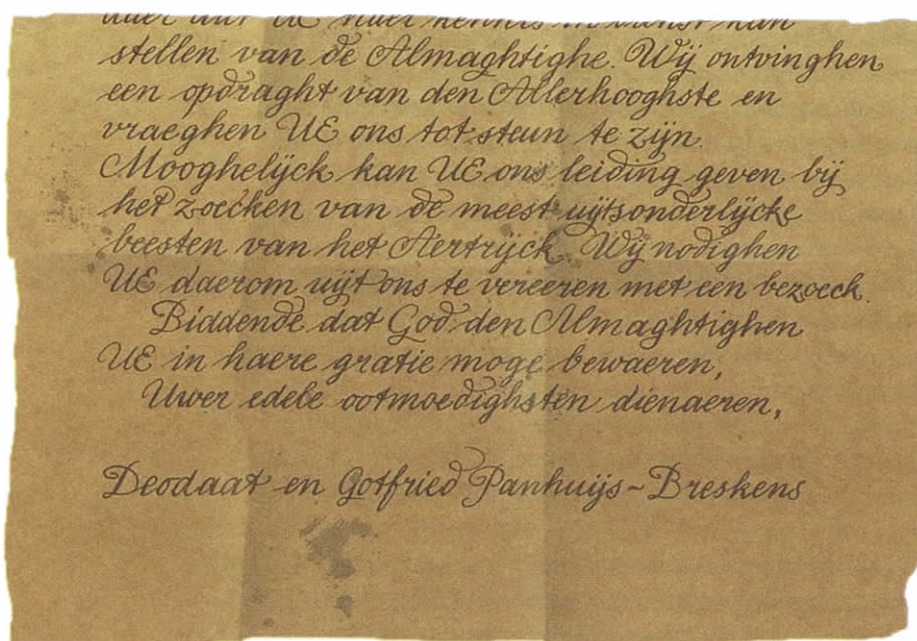 stellen van de Almaghtighe. Wij ontvinghen
een opdraght van den Allerhooghste en
vraeghen UE ons tot steun te zijn.
Mooghelijck kan UE ons leiding geven bij
het zoecken van de meest uijtsonderlijcke
beesten van het Aertrijck. Wij nodighen
UE daerom uijt ons te vereeren met een bezoeck.
Biddende dat God den Almaghtighen
UE in haere gratie moge bewaeren,
Uwer edele ootmoedighsten dienaeren,
Deodaat en Gotfried Panhuijs~Breskens